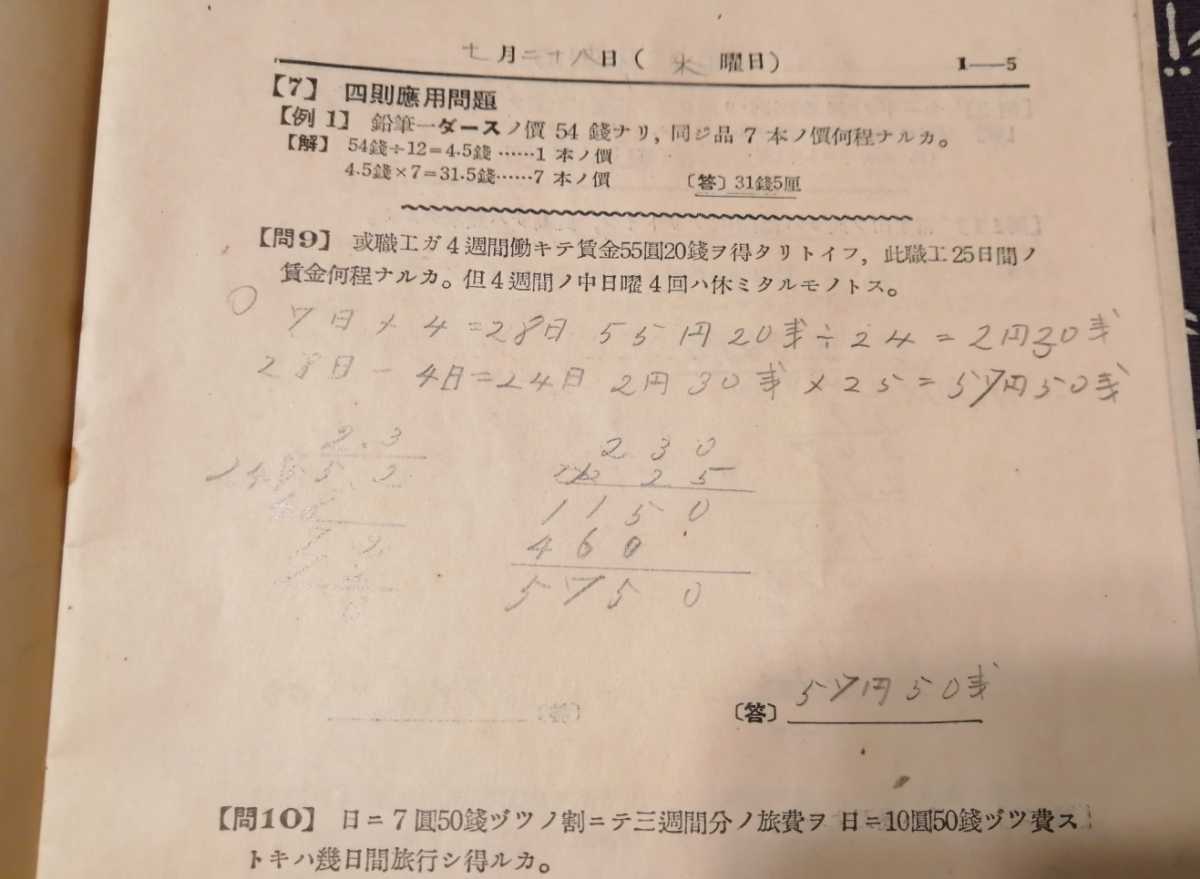 七月二十八日( 水 曜日) 1—5
【7】 四則應用問題
【例 1】 鉛筆一ダースノ價 54 錢ナリ, 同ジ品 7 本ノ價何程ナルカ。
【解】 54錢÷12=4.5錢 ……1 本ノ價
4.5錢×7=31.5錢……7 本ノ價 〔答〕31錢5厘
【問9】 或職工ガ4週間働キテ賃金55圓20錢ヲ得タリトイフ, 此職工25日間ノ
賃金何程ナルカ。但4週間ノ中日曜4回ハ休ミタルモノトス。
7日×4=28日 55円20戋÷24=2円30戋
28日-4日=24日 2円30戋×25=57円50戋
2.3
24 55.2
48
72
72
0
230
25
1150
460
5750
〔答〕 57円50戋
【問10】 日ニ7圓50錢ヅツノ割ニテ三週間分ノ旅費ヲ 日ニ10圓50錢ヅツ費ス
トキハ幾日間旅行シ得ルカ。